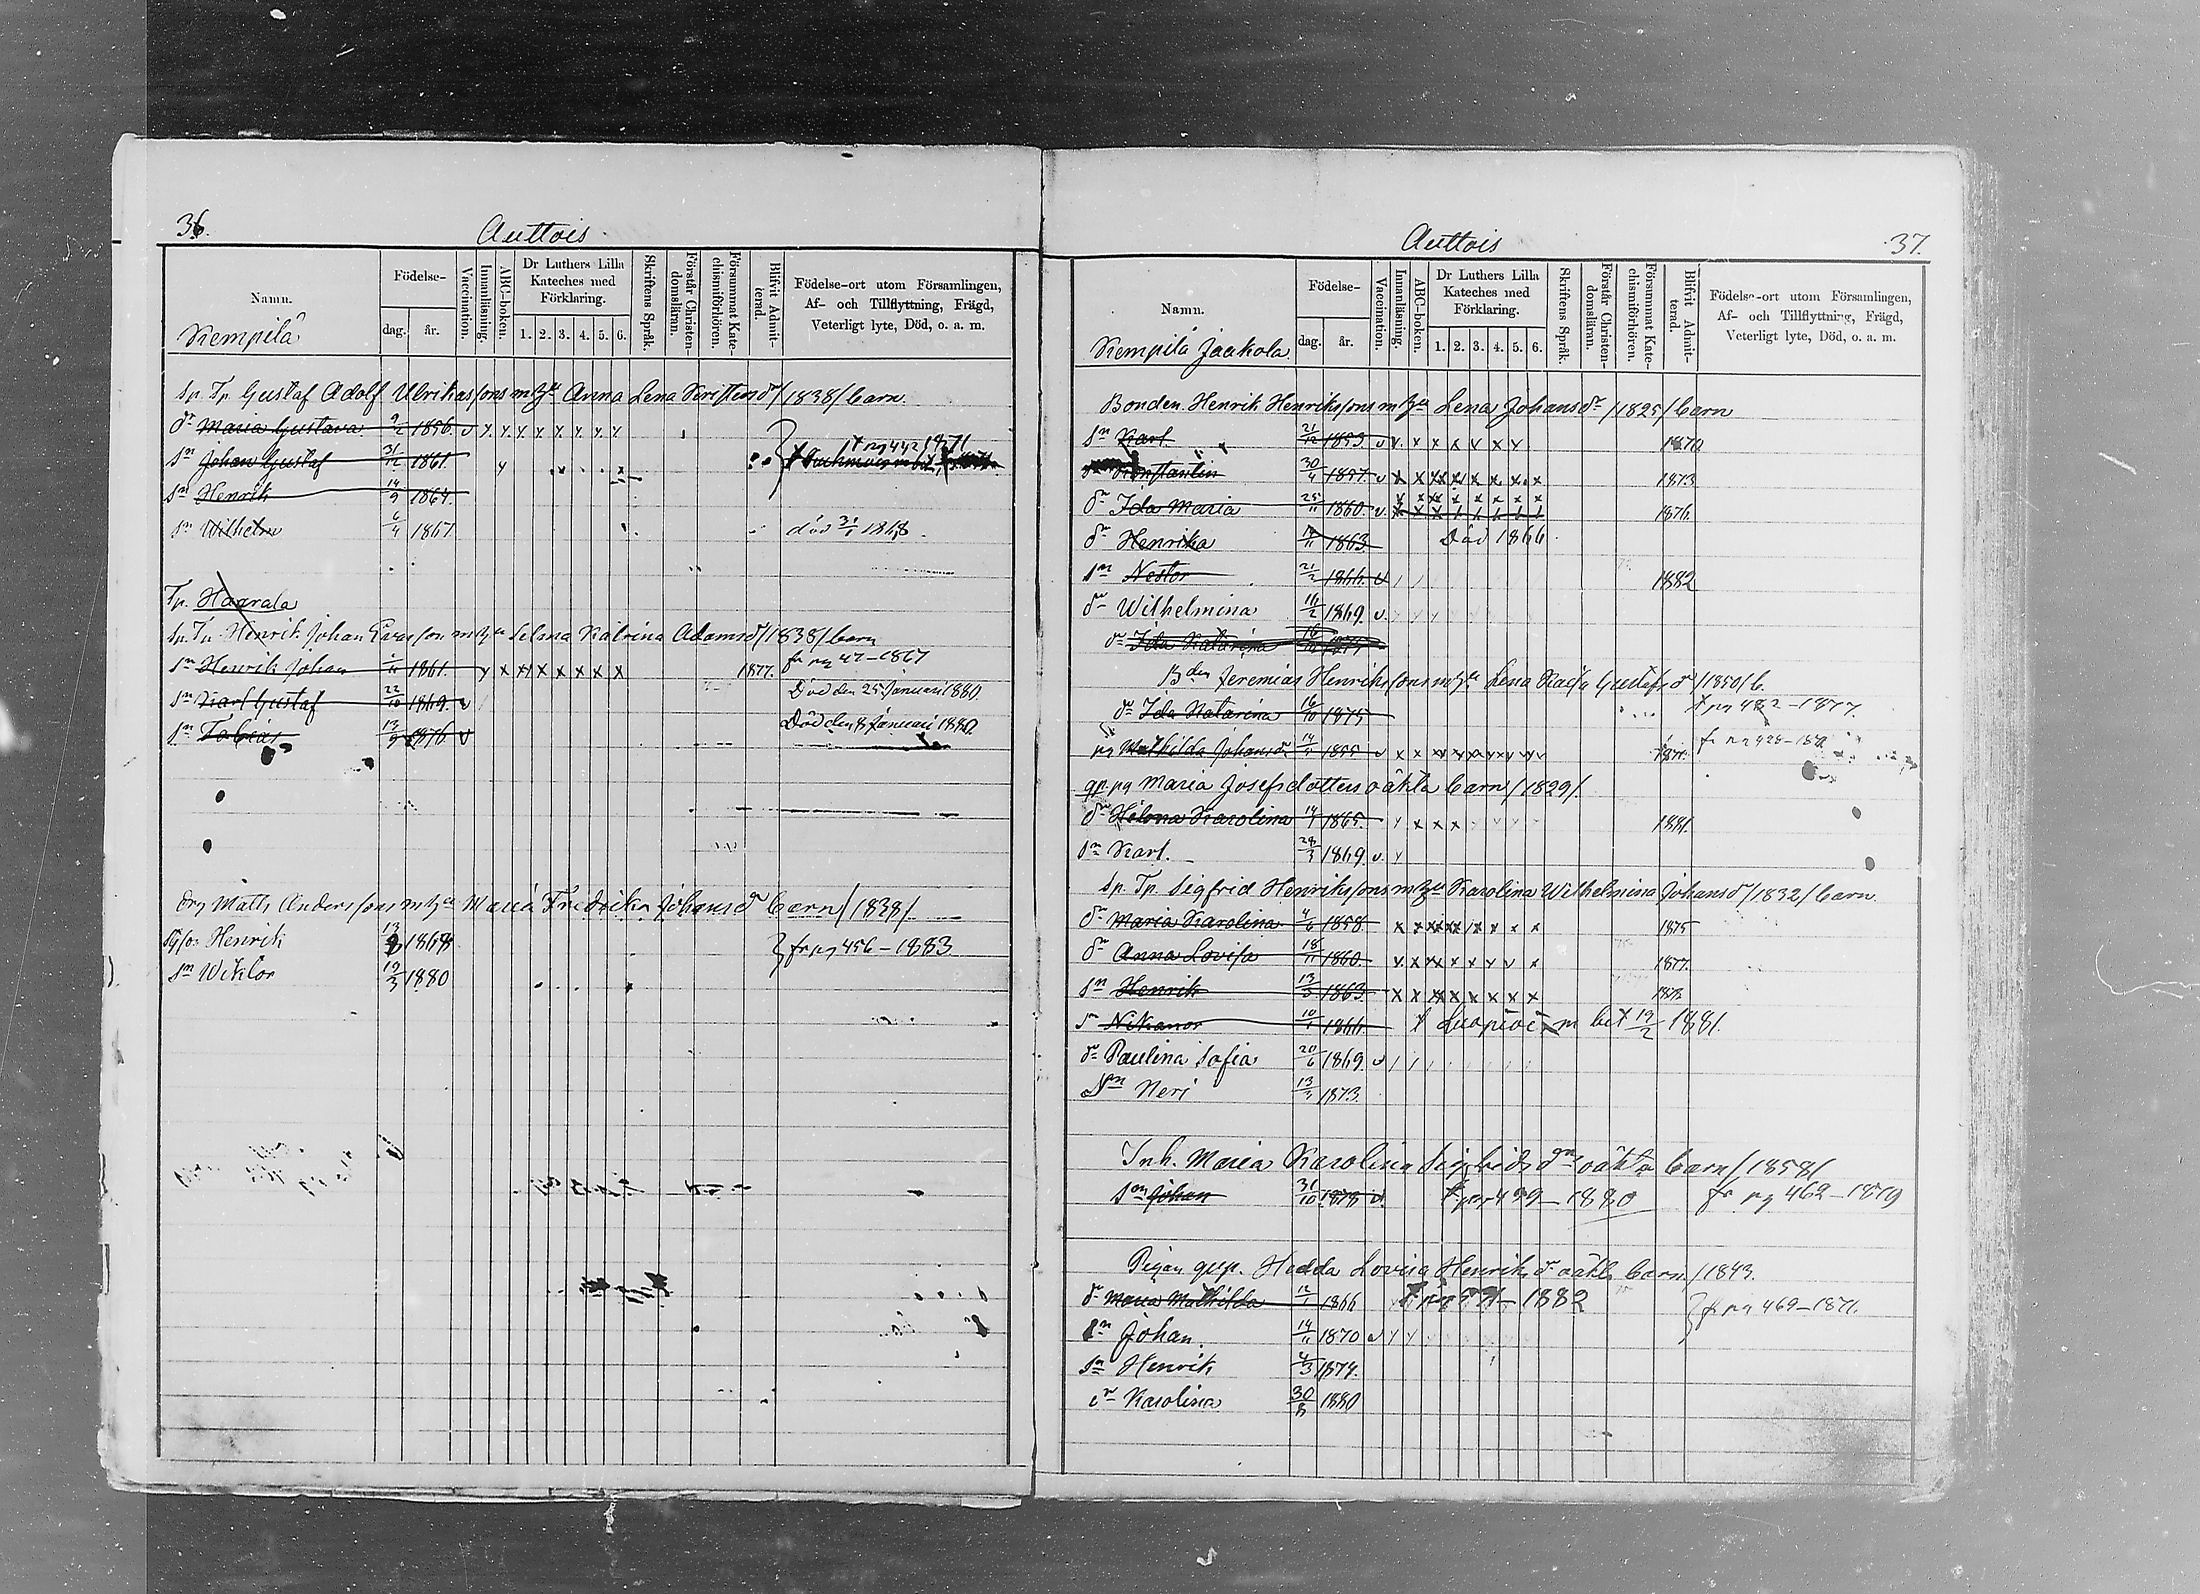 36.
Auttois
Namn.
Födelse-
dag.
år.
Vaccination.
Innanläsning.
ABC-boken.
Dr Luthers Lilla Kateches med Förklaring.
1. 2. 3. 4. 5. 6.
Skriftens Språk.
Förstår Christendomsläran.
Försummat Katechismiförhören.
Blifvit Admitterad.
Födelse-ort utom Församlingen, Af- och Tillflyttning, Frägd, Veterligt lyte, Död, o. a. m.
Kempilä
Sp. Tp. Gustaf Adolf Ulrikassons m hu Anna Lena /1838/ barn
dr Maria Gustava 9/2 1856. v
sn Johan Gustaf 31/12 1861. t pg 442 1871
sn Henrik 14/9 1864.
sn Wilhelm 6/4 1867. död 31/1 1868.
Tp. Haarala
Sp. Tp. Henrik Johan m hu Selma Katrina Adamsdr /1838/ barn
sn Henrik Johan 1861. 1877. fr pg 47-1867
sn Karl Gustaf 22/10 1869. v Död den 25 Januari 1880
sn Tobias 13/9 1876 v Död den 8 Januari 1880.
Drg Matts Anderssons m hu Maria Fredrika Johansdr barn /1838/
Henrik 13 1868 fr pg 456-1883
sn Wiktor 19/3 1880
37.
Auttois
Namn.
Födelse-
dag.
år.
Vaccination.
Innanläsning.
ABC-boken.
Dr Luthers Lilla Kateches med Förklaring.
1. 2. 3. 4. 5. 6.
Skriftens Språk.
Förstår Christendomsläran.
Försummat Katechismiförhören.
Blifvit Admitterad.
Födelse-ort utom Församlingen, Af- och Tillflyttning, Frägd, Veterligt lyte, Död, o. a. m.
Kempilä Jaakola
Bonden Henrik Henrikssons m hu Lena Johansdr /1825/ barn
sn Karl 21/12 1853 v 1870
Konstantin 30/4 1857. v 1873
dr Ida Maria 25/11 1860. v 1876.
dr Henrika 1863 Död 1866.
sn Nestor 21/2 1866. v 1882
dr Wilhelmina 16/2 1869. v
dr Ida Katarina 16/10 1875
Bden Jeremias Henrikssons m hu Lena Kaisa Gustafsdr /1850/ b.
dr Ida Katarina 16/10 1875 t pg 482-1877.
pg Mathilda Johansdr 14 1855 v fr pg 428-
gp. pg Maria Josefsdotters oäkta barn /1829/.
dr Helena Karolina 14/1 1865. 1881.
sn Karl. 28/3 1869. v.
Sp. Tp. Sigfrid Henrikssons m hu Karolina Wilhelmina Johansdr /1832/ barn.
dr Maria Karolina 4/6 1858. 1875
dr Anna Lovisa 18/11 1860. 1877.
sn Henrik 13/3 1863.
s Nikanor 10/1 1866. t Luopiois m bet 19/2 1881.
dr Paulina Sofia 20/6 1869. v
Sn Neri 13 1873.
Inh. Maria Karolina Sigfrids drs oäkta barn /1858/
sn Johan 31/10 1878 v. t pg 499-1880 fr pg 462-1879
Pigan gvp. Hedda Lovisa Henriksdr oäkta barn. /1843.
dr Maria Mathilda 12/1 1866 1882 fr pg 469-1871.
sn Johan. 14/11 1870 v
sn Henrik 4/3 1874.
dr Karolina 30/8 1880